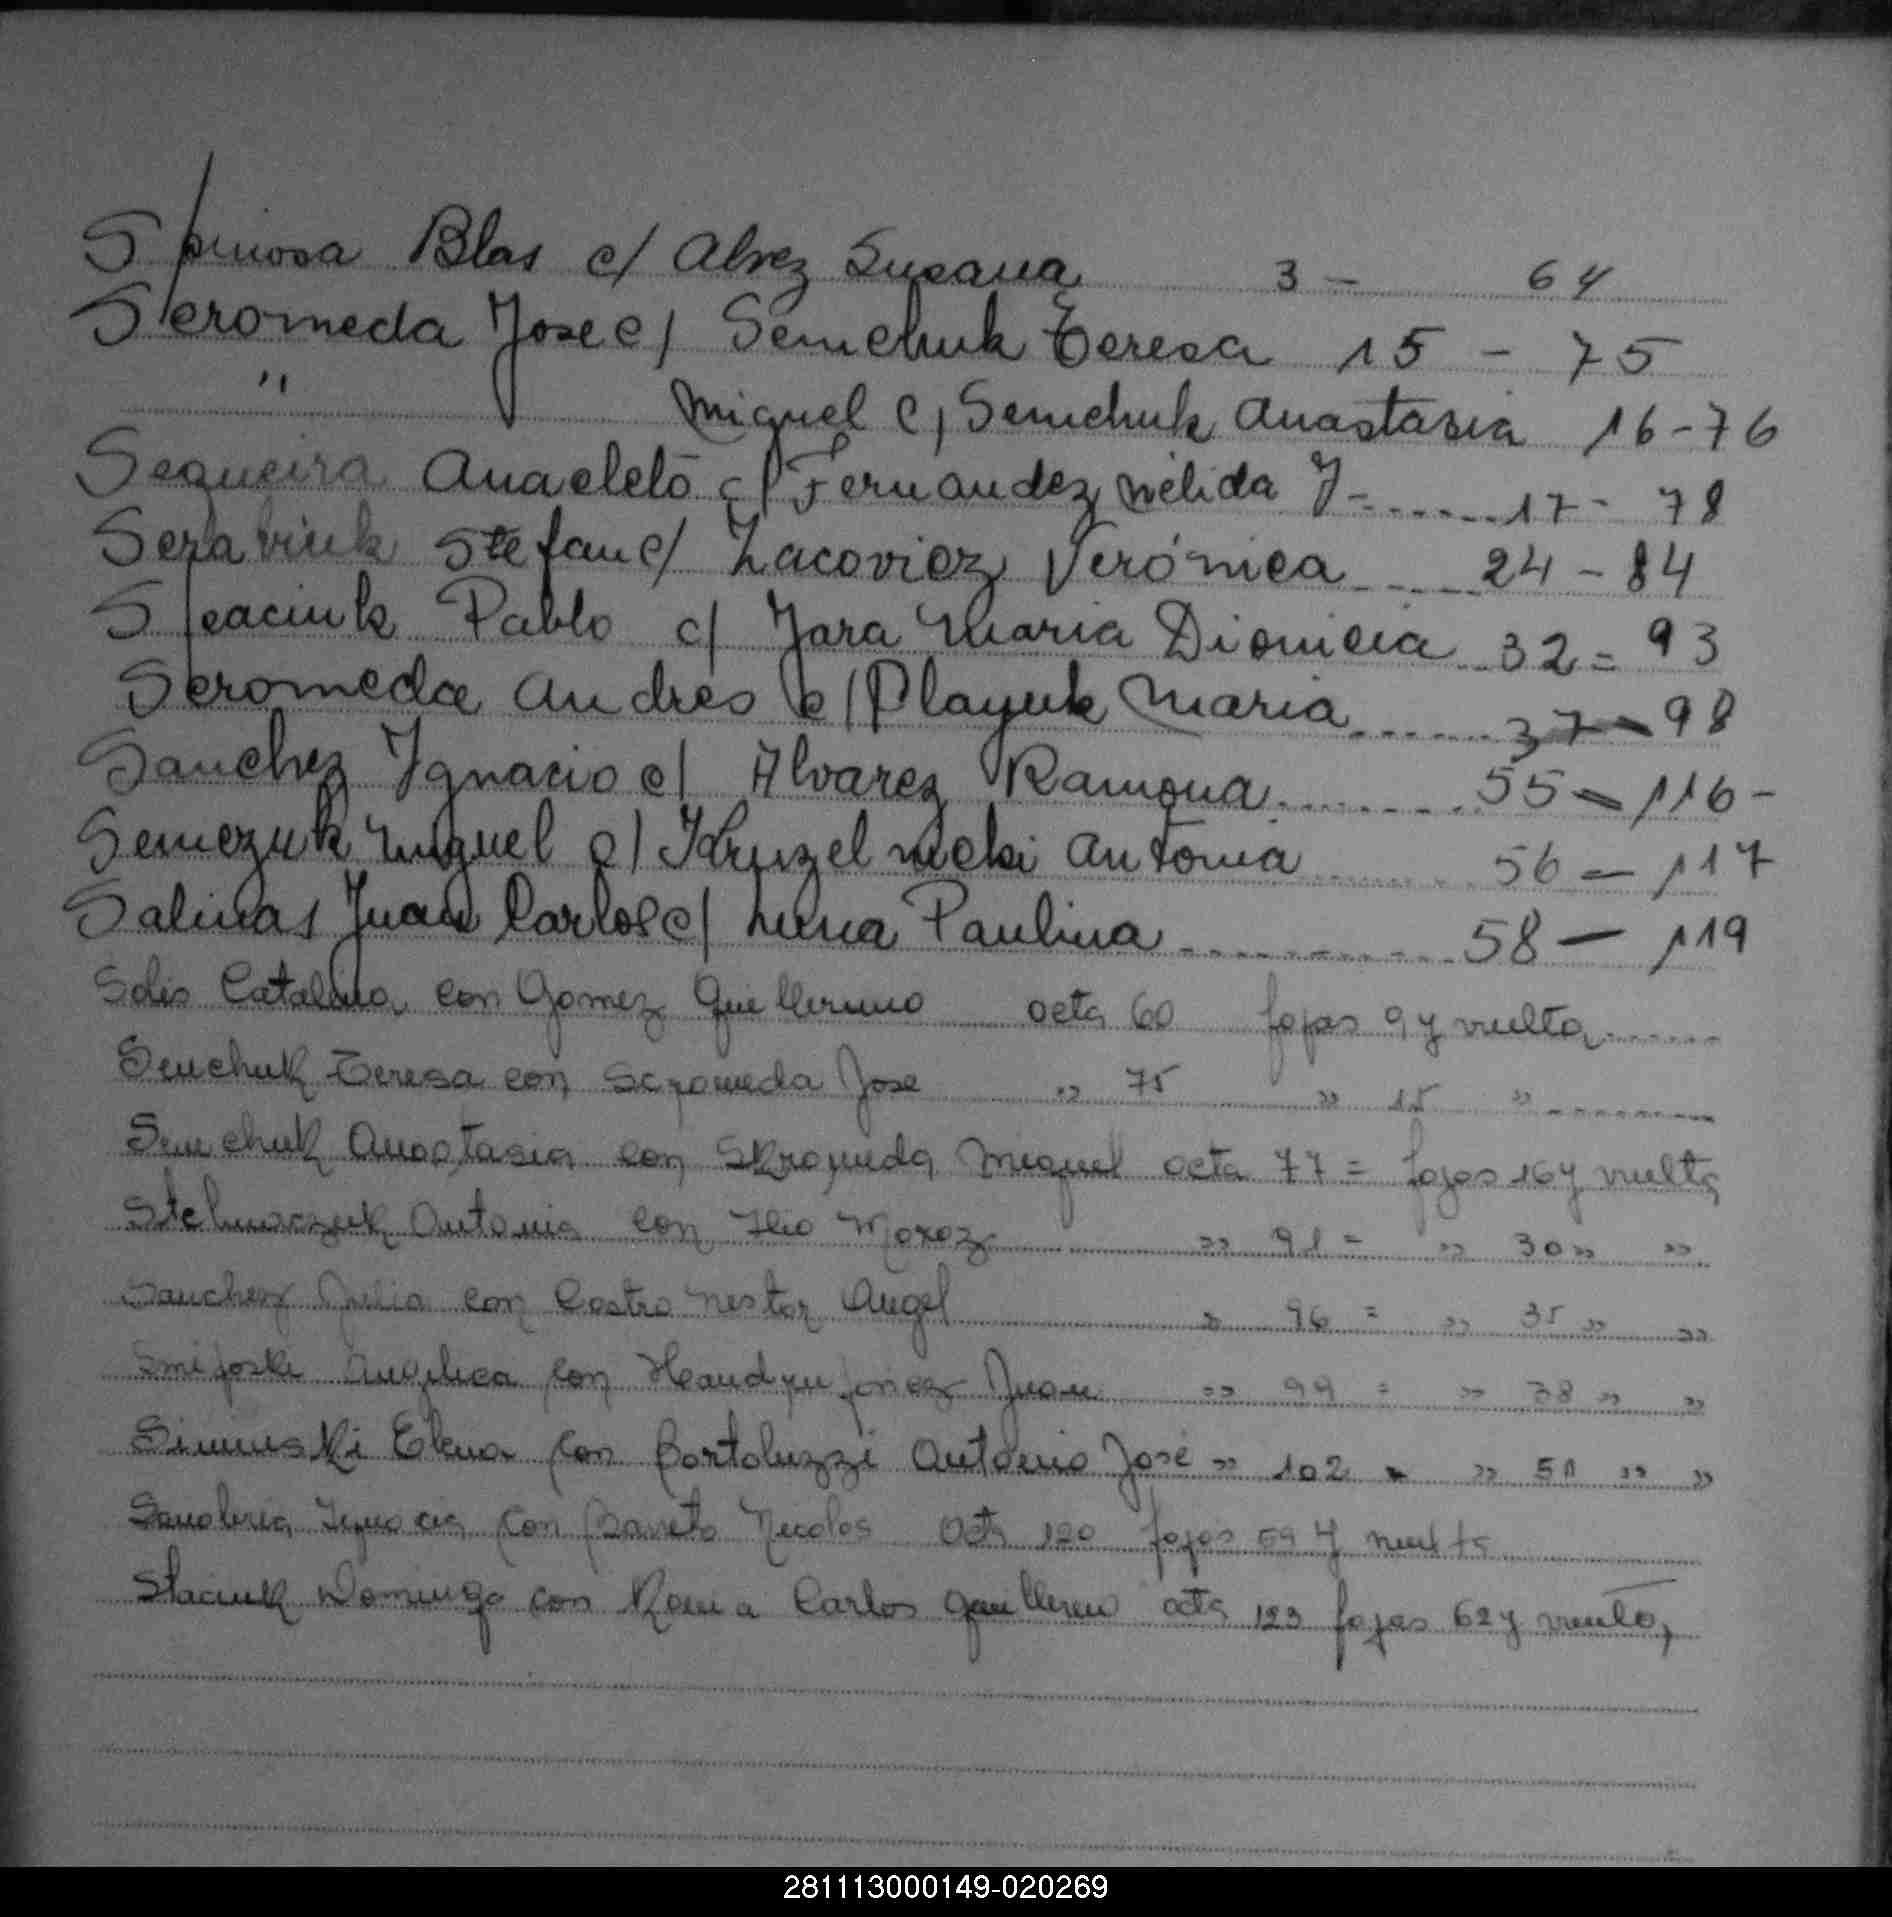 Spinosa Blas c/ Alvez Susana 3 - 64
Scromeda Jose c/ Semchuk Teresa 15 - 75
" Miguel c/ Semchuk Anastasia 16-76
Sequeira Anacleto c/ Fernandez Nélida J- 17- 78
Seraviuk Stefan c/ Zacovicz Verónica 24 - 84
Pablo c/ Jara Maria Dionicia 32= 93
Scromeda Andres c/ Playuk Maria 37-98
Sanchez Ignacio c/ Alvarez Ramona 55-116-
Semczuk Miguel c/ Antonia 56 - 117
Salinas Juan Carlos c/ Luna Paulina 58 - 119
Solis Catalina con Gomez Guillermo acta 60 fojas 9 y vuelta
Semchuk Teresa con Scromeda Jose " 75 " 15 "
Semchuk Anastasia con Skromeda Miguel acta 77 = fojas 16 y vuelta
Antonia con Ilio Moroz " 91 = " 30 " "
Sanchez Julia con Castro Nestor Angel " 96 = " 35 " "
Angelica con Juan " 99 = " 38 " "
Elena con Bortoluzzi Antonio José " 102 = " "  "
Sanabria Ignacia con Nicolas acta 120 fojas 59 y vuelta
Staciuk Dominga con Carlos Guillermo acta 123 fojas 62 y vuelta,
281113000149-020269